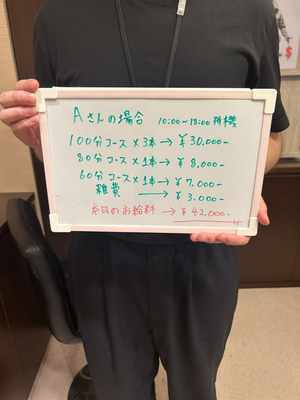 Aさんの場合 10:00~18:00 待機
100分コース×3本→¥30.000-
80分コース×1本→¥8.000-
60分コース×1本→¥7.000-
雑費 →¥3.000-
本日のお給料→¥42.000-